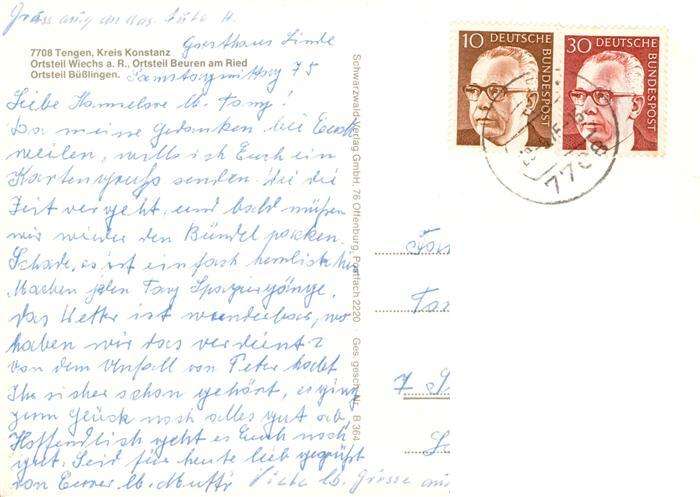 Gruss auch an das Auto H.
Gasthaus Linde
7708 Tengen, Kreis Konstanz
Ortsteil Wiechs a. R., Ortsteil Beuren am Ried
Ortsteil Büßlingen.
Samstagmittag 75
Liebe Hannelore lb. Tomy!
Da meine Gedanken bei Euch
weilen, will ich Euch ein
Kartengruß senden. Wie die
Zeit vergeht und bald müßen
wir wieder den Bündel packen.
Schade, es ist einfach heimlich hier
Machen jeden Tag Spaziergänge,
das Wetter ist wunderbar, wo
haben wir das verdient?
Von dem Unfall von Peter habt
Ihr sicher schon gehört, es ging
zum Glück noch alles gut ab.
Hoffendlich geht es Euch noch
gut. Seid für heute lieb gegrüßt
von Eurer lb. Mutti
Viele lb. Grüsse
Schwarzwald-Verlag GmbH, 76 Offenburg, Postfach 2220 Ges. gesch. Nr. B 364
10 DEUTSCHE BUNDESPOST
30 DEUTSCHE BUNDESPOST
7708
7